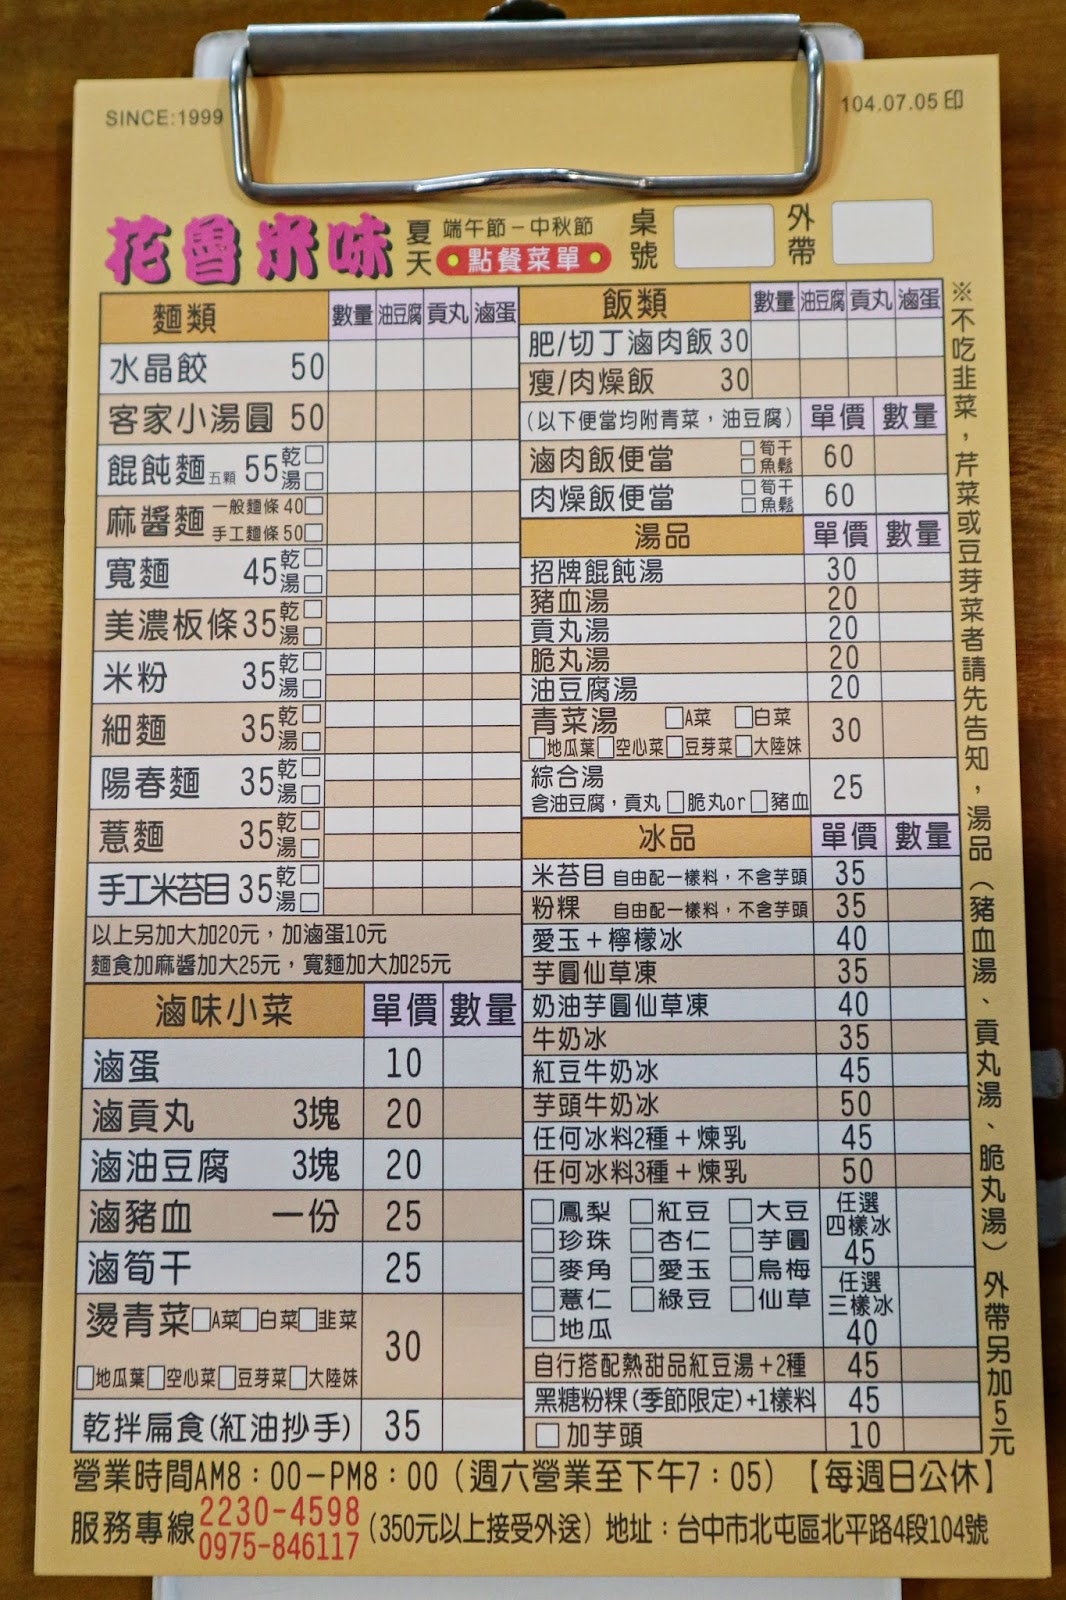 SINCE:1999
104.07.05印
花魯米味
夏天
端午節－中秋節
點餐菜單
桌號
外帶
麵類 數量 油豆腐 貢丸 滷蛋
水晶餃 50
客家小湯圓 50
餛飩麵五顆 55 乾□ 湯□
麻醬麵 一般麵條 40□ 手工麵條 50□
寬麵 45 乾□ 湯□
美濃板條 35 乾□ 湯□
米粉 35 乾□ 湯□
細麵 35 乾□ 湯□
陽春麵 35 乾□ 湯□
薏麵 35 乾□ 湯□
手工米苔目 35 乾□ 湯□
以上另加大加20元，加滷蛋10元
麵食加麻醬加大25元，寬麵加大加25元
滷味小菜 單價 數量
滷蛋 10
滷貢丸 3塊 20
滷油豆腐 3塊 20
滷豬血 一份 25
滷筍干 25
燙青菜 □A菜 □白菜 □韭菜 30
□地瓜葉 □空心菜 □豆芽菜 □大陸妹
乾拌扁食(紅油抄手) 35
飯類 數量 油豆腐 貢丸 滷蛋
肥/切丁滷肉飯 30
瘦/肉燥飯 30
(以下便當均附青菜，油豆腐) 單價 數量
滷肉飯便當 □筍干 □魚鬆 60
肉燥飯便當 □筍干 □魚鬆 60
湯品 單價 數量
招牌餛飩湯 30
豬血湯 20
貢丸湯 20
脆丸湯 20
油豆腐湯 20
青菜湯 □A菜 □白菜 30
□地瓜葉 □空心菜 □豆芽菜 □大陸妹
綜合湯 25
含油豆腐，貢丸 □脆丸or □豬血
冰品 單價 數量
米苔目 自由配一樣料，不含芋頭 35
粉粿 自由配一樣料，不含芋頭 35
愛玉＋檸檬冰 40
芋圓仙草凍 35
奶油芋圓仙草凍 40
牛奶冰 35
紅豆牛奶冰 45
芋頭牛奶冰 50
任何冰料2種＋煉乳 45
任何冰料3種＋煉乳 50
□鳳梨 □紅豆 □大豆
□珍珠 □杏仁 □芋圓
□麥角 □愛玉 □烏梅
□薏仁 □綠豆 □仙草
□地瓜
任選四樣冰 45
任選三樣冰 40
自行搭配熱甜品紅豆湯＋2種 45
黑糖粉粿(季節限定)+1樣料 45
□加芋頭 10
※不吃韭菜，芹菜或豆芽菜者請先告知，湯品（豬血湯、貢丸湯、脆丸湯）外帶另加5元
營業時間AM8：00－PM8：00（週六營業至下午7：05）【每週日公休】
服務專線 2230-4598
0975-846117
（350元以上接受外送）地址：台中市北屯區北平路4段104號